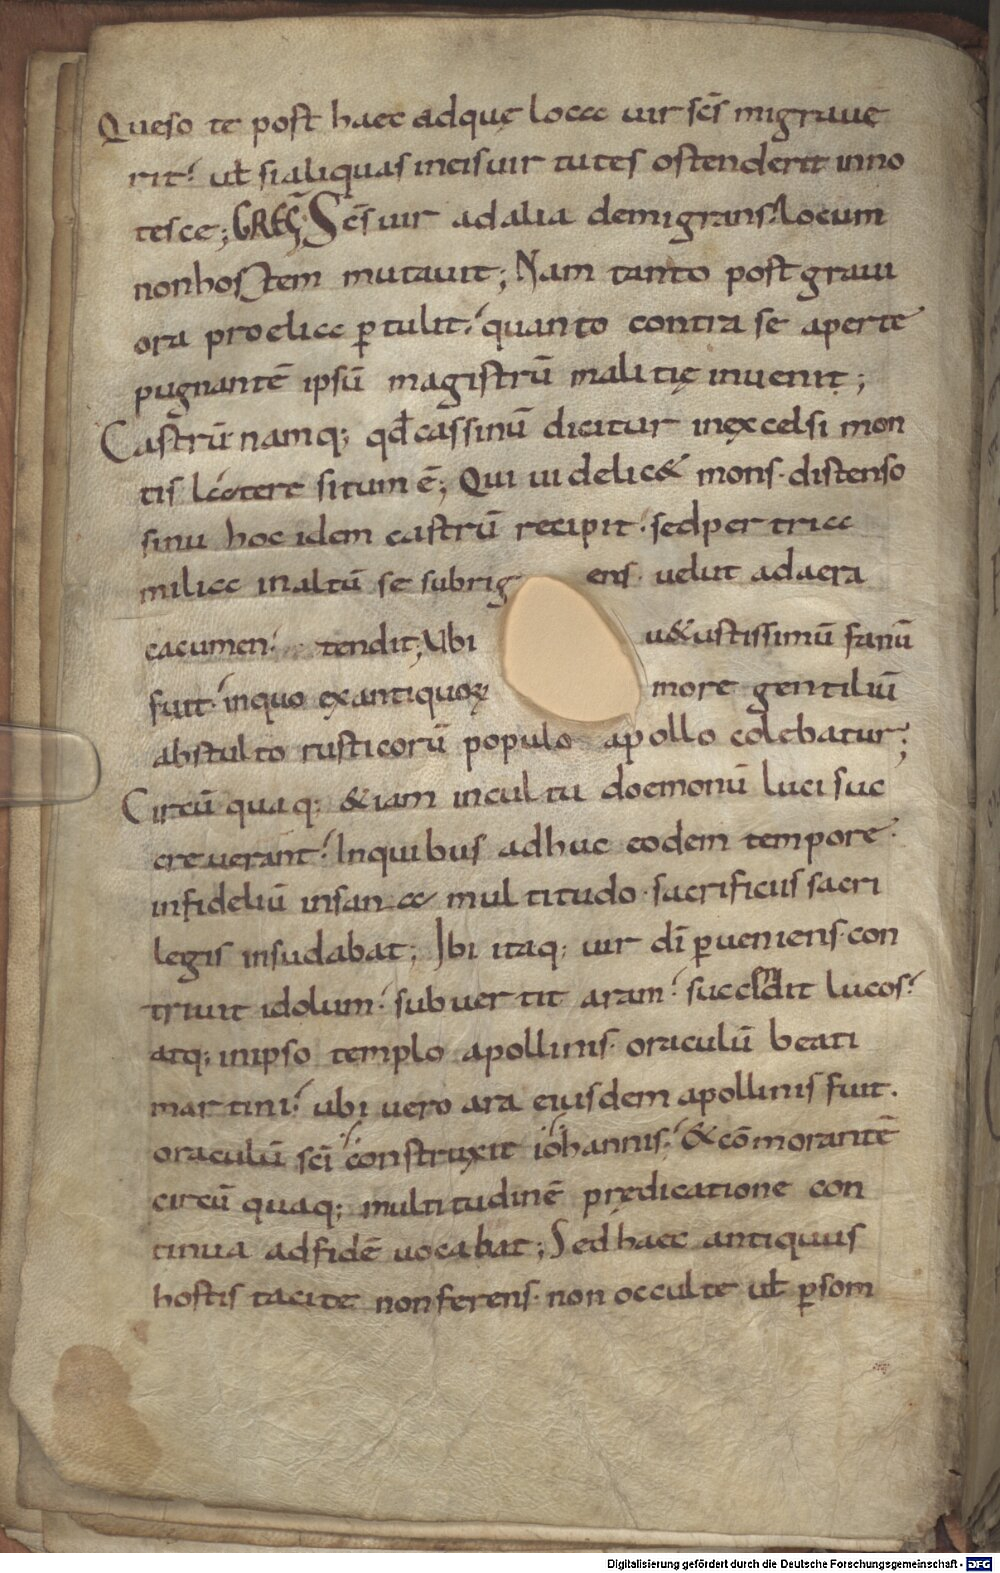 Queso te post haec adquę loca uir scs̄ migraue
rit. ut̄ si aliquas in eis uirtutes ostenderit inno
tesce; GREG̅ Scs̄ uir ad alia demigrans. locum
non hostem mutauit; Nam tanto post graui
ora proelia ꝑtulit. quanto contra se aperte
pugnantē ipsū magistrū malitię inuenit;
Castrū namq; qd̄ cassinū dicitur in excelsi mon
tis latere situm ē; Qui uidelic& mons. distenso
sinu hoc idem castrū recipit. sed per tria
milia in altū se subrig ens. uelut ad aera
cacumen. tendit; Ubi u&ustissimū fanū
fuit. in quo ex antiquoꝝ more gentiliū
a bstulto rusticorū populo apollo colebatur;
Circū quaq; &iam in cultu doemonū luci suc
creuerant. In quibus adhuc eodem tempore.
infideliū insana multitudo. sacrificiis sacri
legis insudabat; Ibi itaq; uir dī ꝑueniens. con
triuit idolum. subuertit aram. succendit lucos.
atq; in ipso templo apollinis. oraculū beati
martini. ubi uero ara eiusdem apollinis fuit.
oraculū scī construxit iohannis. & cōmorantē
circū quaq; multitudinē prędicatione con
tinua ad fidē uocabat; Sed haec antiquus
hostis tacite non ferens. non occulte ut̄ ꝑ som
Digitalisierung gefördert durch die Deutsche Forschungsgemeinschaft - DFG